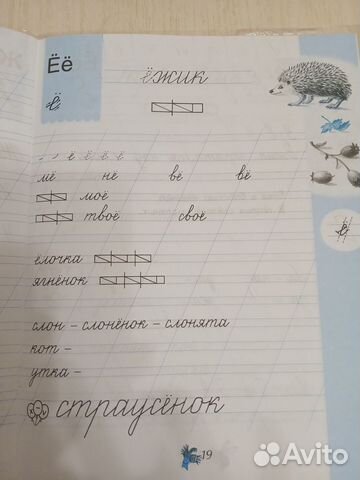 Ёё
ёжик
ё
ё ё ё ё
мё нё вё вё
моё
твоё своё
ёлочка
ягнёнок
слон – слонёнок – слонята
кот –
утка –
страусёнок
19
Avito